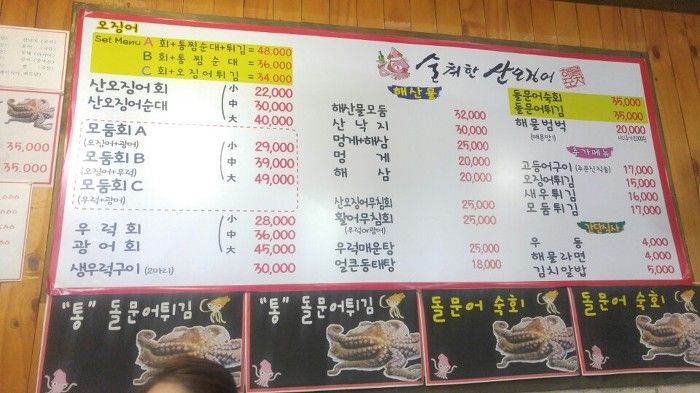 오징어
Set Menu A 회+통찜순대+튀김= 48,000
B 회+통찜순대= 36,000
C 회+오징어튀김= 34,000
산오징어회 小 22,000
산오징어순대 中 30,000
大 40,000
모둠회 A
(오징어+광어) 小 29,000
모둠회 B 中 39,000
(오징어+우럭) 大 49,000
모둠회 C
(우럭+광어)
小 28,000
우럭회 中 36,000
광어회 大 45,000
생우럭구이 (2마리) 30,000
술취한 산오징어
해산물
해산물모둠 32,000
산낙지 30,000
멍게+해삼 25,000
멍게 20,000
해삼 20,000
산오징어무침회 25,000
활어무침회 25,000
(우럭or광어)
우럭매운탕 25,000
얼큰동태탕 18,000
돌문어숙회 35,000
돌문어튀김 35,000
해물범벅 20,000
추가메뉴
고등어구이 17,000
오징어튀김 15,000
새우튀김 16,000
모둠튀김 17,000
간단식사
우동 4,000
해물라면 4,000
김치알밥 5,000
35,000
35,000
"통" 돌문어튀김
"통" 돌문어튀김
돌문어 숙회
돌문어 숙회